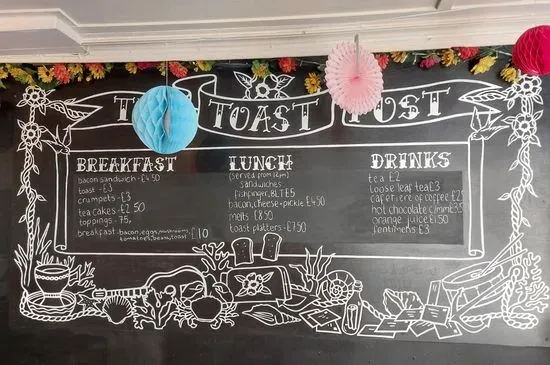 TOAST POST
BREAKFAST
bacon sandwich - £4.50
toast - £3
crumpets - £3
tea cakes - £2.50
toppings - 75p
breakfast - bacon, eggs, mushrooms, £10
tomatoes, beans, toast
LUNCH
(served from 12pm)
sandwiches
fishfinger, BLT £5
bacon, cheese + pickle £4.50
melts £8.50
toast platters - £7.50
DRINKS
tea £2
loose leaf tea £3
cafetiere of coffee £2
hot chocolate
orange juice £1.50
fentimens £3